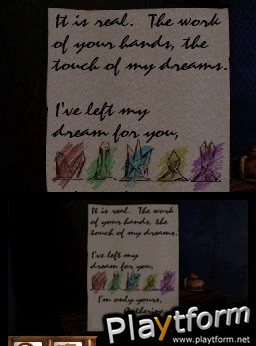 It is real. The work
of your hands, the
touch of my dreams.
I've left my
dream for you,
It is real. The work
of your hands, the
touch of my dreams.
I've left my
dream for you,
I'm only yours,
Catherine
Playtform
www.playtform.net